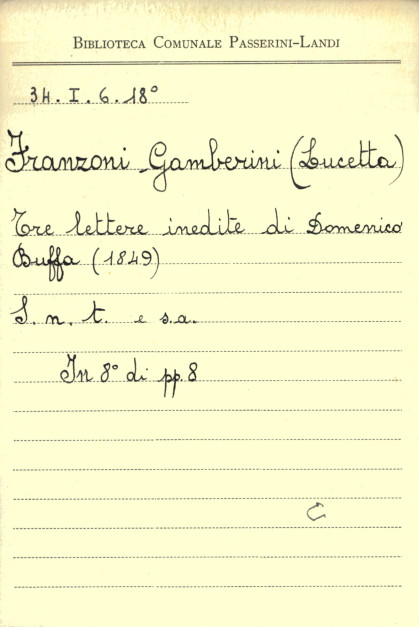 BIBLIOTECA COMUNALE PASSERINI-LANDI
34. I. 6. 18°
Franzoni Gamberini (Lucetta)
Tre lettere inedite di Domenico
Buffa (1849)
S. n. t. e s.a.
In 8° di pp. 8
C